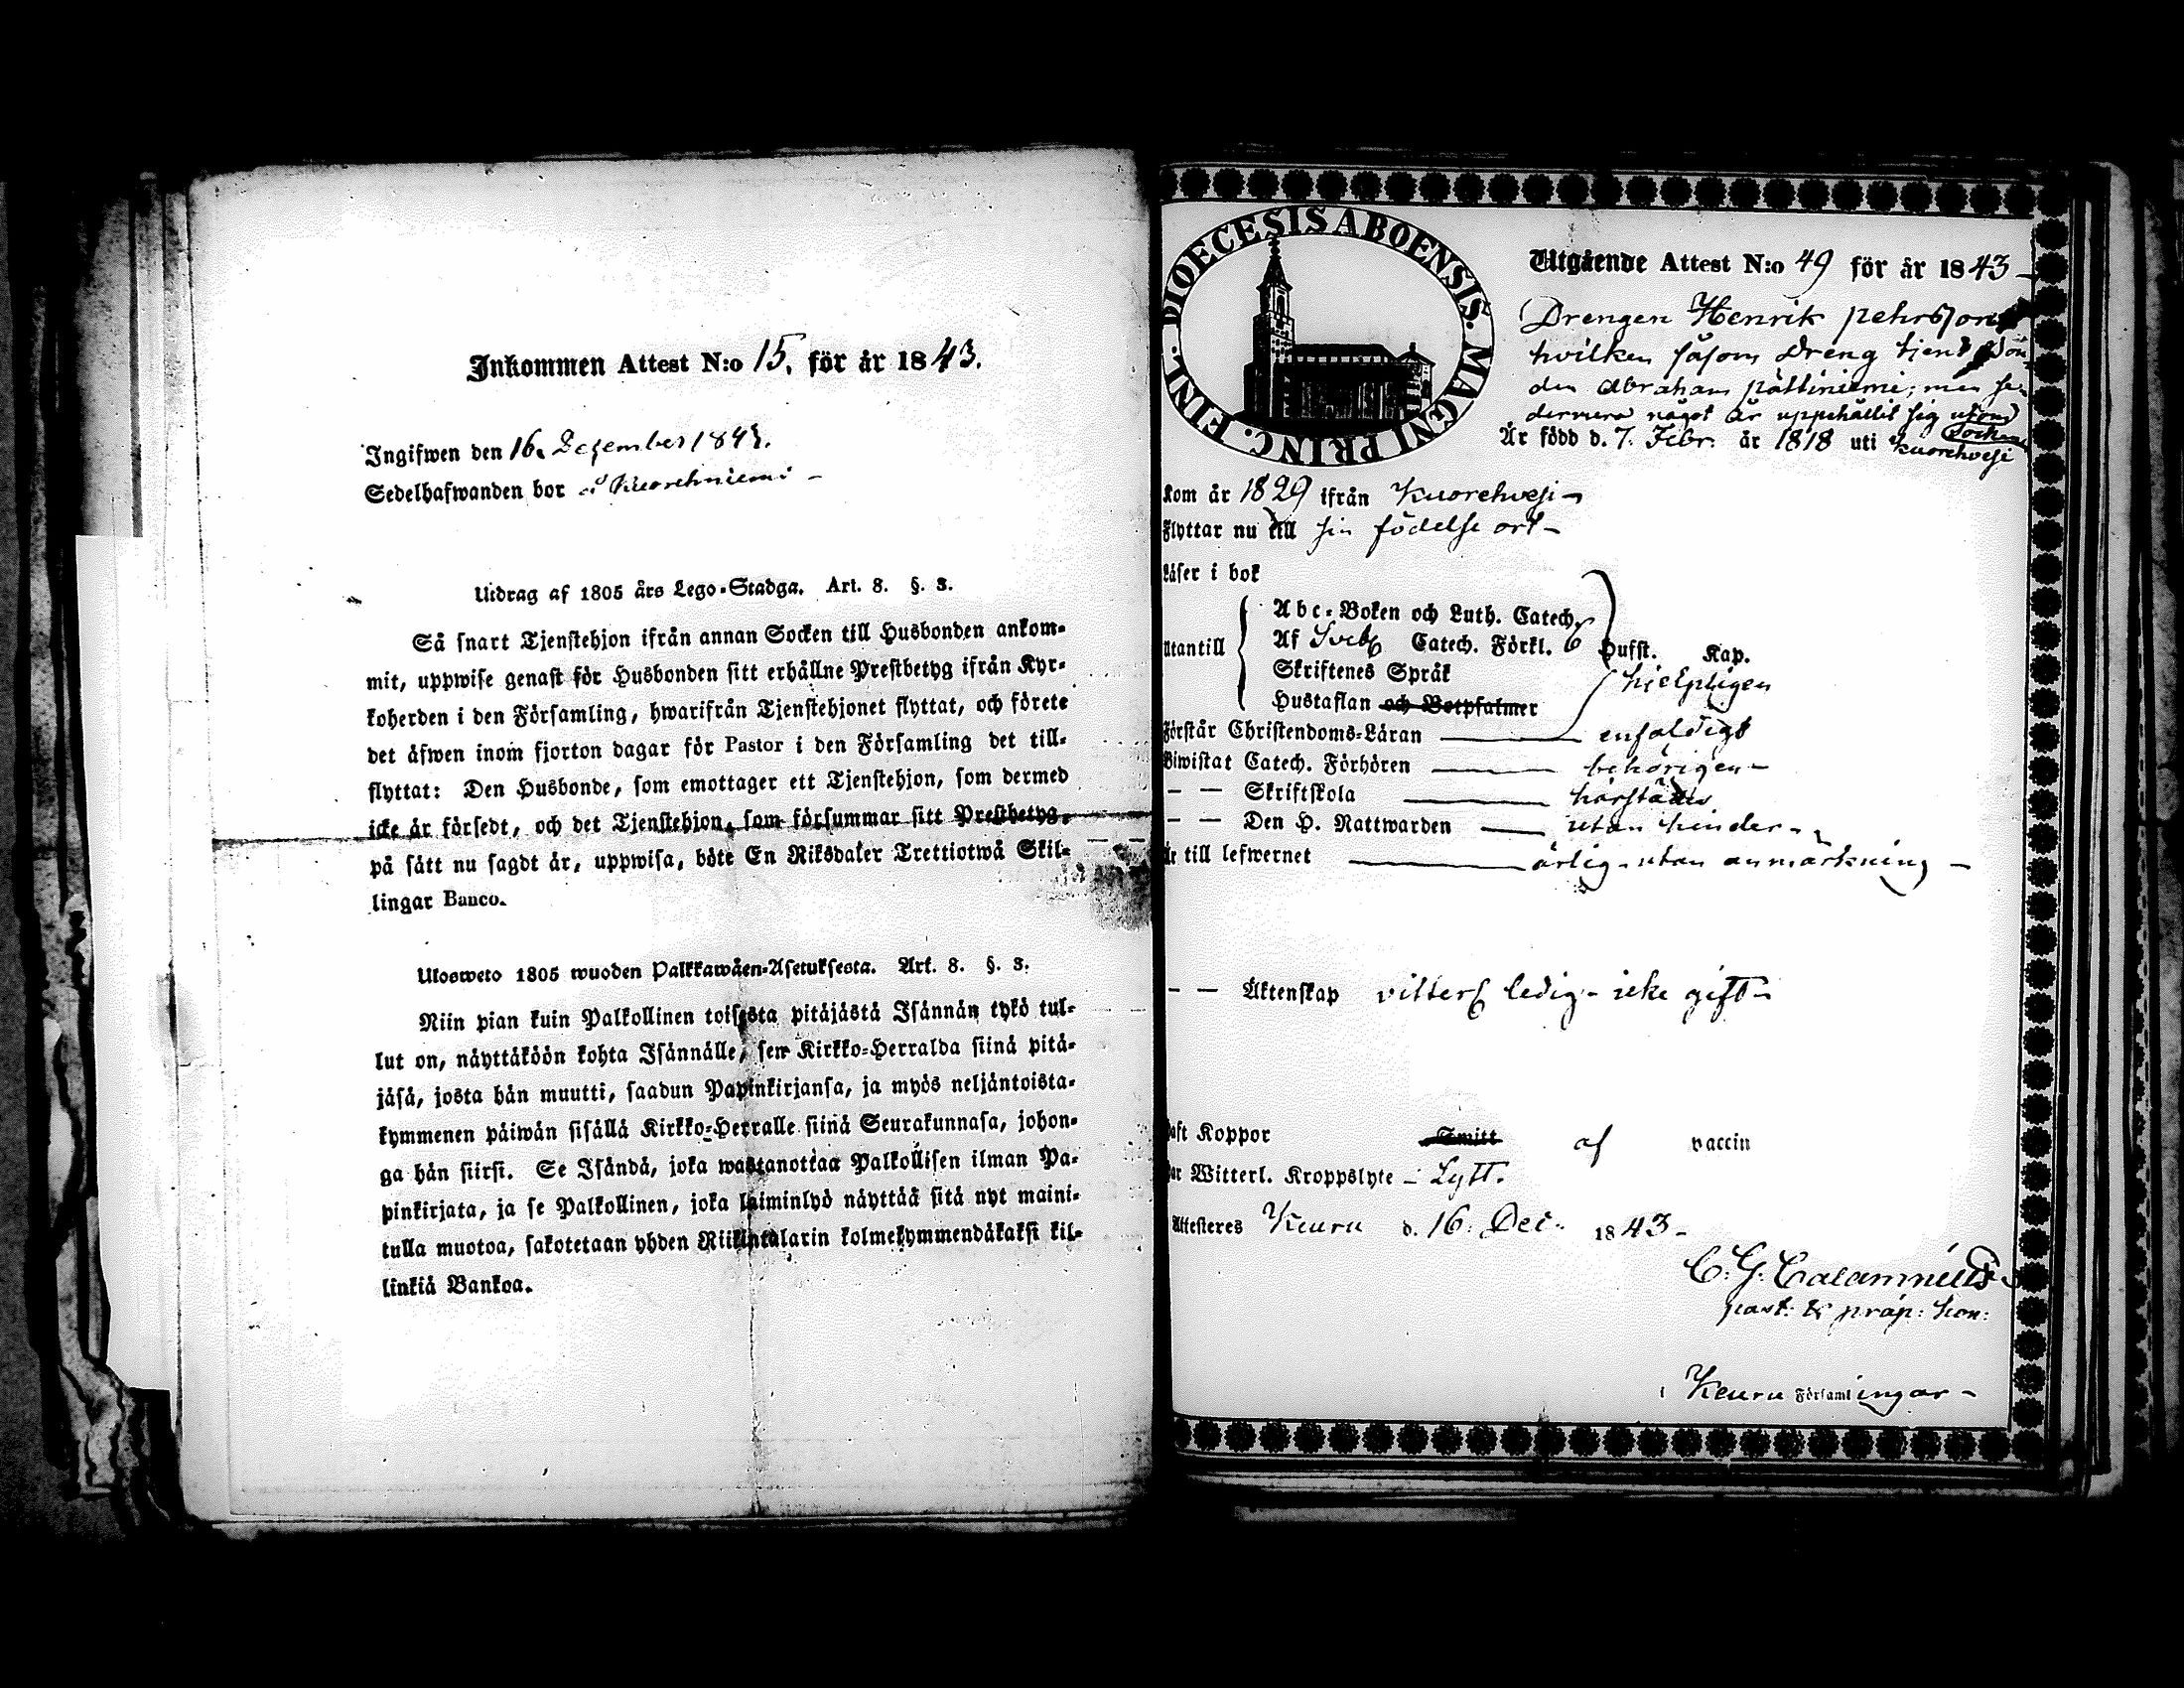 Inkommen Attest N:o 15. för år 1843.
Ingifwen den 16. December 1843.
Sedelhafwanden bor å Kuorehniemi –
Utdrag af 1805 års Lego-Stadga. Art. 8. §. 3.
Så snart Tjenstehjon ifrån annan Socken till Husbonden ankom-
mit, uppwise genast för Husbonden sitt erhållne Prestbetyg ifrån Kyr-
koherden i den Församling, hwarifrån Tjenstehjonet flyttat, och förete
det äfwen inom fjorton dagar för Pastor i den Församling det till-
flyttat: Den Husbonde, som emottager ett Tjenstehjon, som dermed
icke är försedt, och det Tjenstehjon, som försummar sitt Prestbetyg,
på sätt nu sagdt är, uppwisa, böte En Riksdaler Trettiotwå Skil-
lingar Banco.
Ulosweto 1805 wuoden Palkkawäen-Asetuksesta. Art. 8. §. 3.
Niin pian kuin Palkollinen toisesta pitäjästä Isännän tykö tul-
lut on, näyttäköön kohta Isännälle, sen Kirkko-Herralda siinä pitä-
jäsä, josta hän muutti, saadun Papinkirjansa, ja myös neljäntoista-
kymmenen päiwän sisällä Kirkko-Herralle siinä Seurakunnasa, johon-
ga hän siirsi. Se Isändä, joka wastanottaa Palkollisen ilman Pa-
pinkirjata, ja se Palkollinen, joka laiminlyö näyttää sitä nyt maini-
tulla muotoa, sakotetaan yhden Riikintalarin kolmekymmendäkaksi kil-
linkiä Bankoa.
DIOECESIS ABOENSIS. MAGNI PRINC. FINL.
Utgående Attest N:o 49 för år 1843 –
Drengen Henrik Pehrsson
hvilken såsom Dreng tjent Bon
den Abraham Pättiniemi; men se
dermera något år uppehållit sig utom
Socknen
Är född d. 7. Febr. år 1818 uti Kuorehvesi
Kom år 1829 ifrån Kuorehvesi –
Flyttar nu till sin födelse ort –
Läser i bok
Abc-Boken och Luth. Catech.
Utantill Af Sveb. Catech. Förkl. 6 Hufst. Kap.
Skriftenes Språk
hjelpligen
Hustaflan och Botpsalmer
Förstår Christendoms-Läran enfaldigt
Biwistat Catech. Förhören behörigen –
— — Skriftskola härstädes
— — Den H. Nattwarden utan hinder –
Är till lefwernet ärlig – utan anmärkning –
— — Äktenskap vitterl. ledig – icke gift –
haft Koppor Smitt af vaccin
Har Witterl. Kroppslyte – Lytt.
Attesteres Keuru d. 16. Dec. 1843 –
C. G. Calamnius
past. & præp. hon:
i Keuru Församlingar –